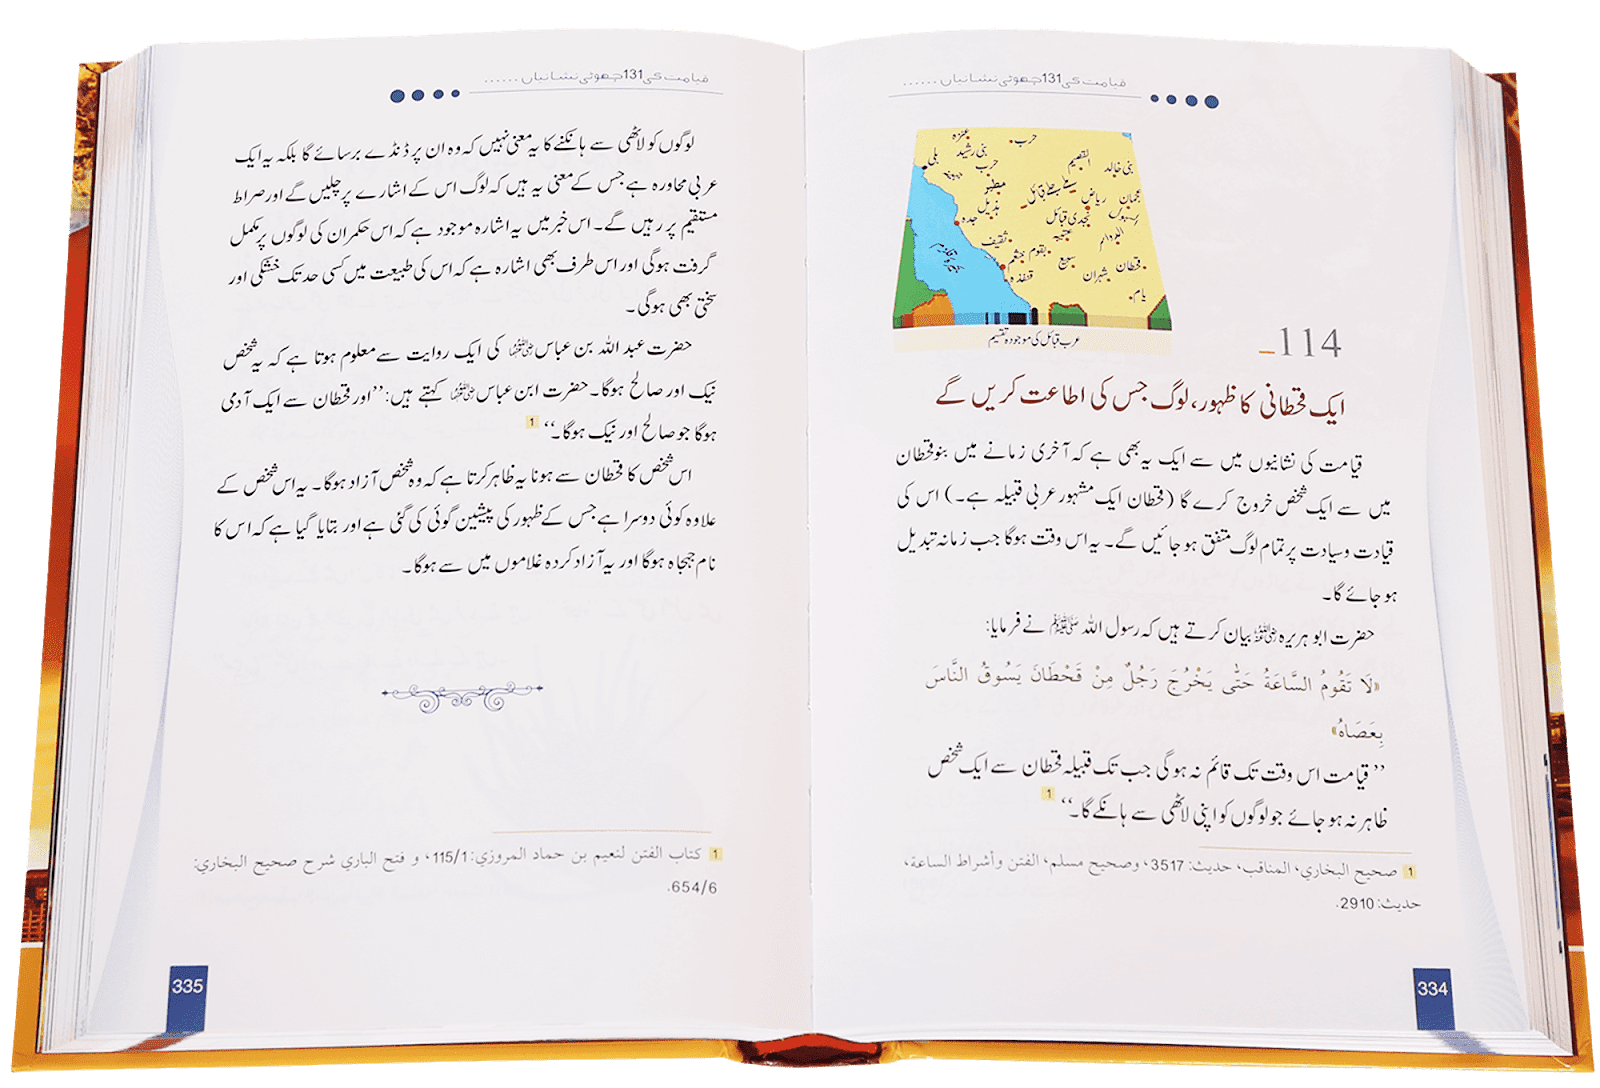 قیامت کی 131 چھوٹی نشانیاں ......
عنزہ
حرب
بنی رشید
بلی
حرب
القصیم
بنی خالد
مطیر
ہذیل
جدہ
ریاض
عجمان
نجدی قبائل
الدواسر
ثقیف
بقوم
سبیع
شہران
قحطان
یام
قنفذہ
عرب قبائل کی موجودہ تقسیم
114
ایک قحطانی کا ظہور، لوگ جس کی اطاعت کریں گے
قیامت کی نشانیوں میں سے ایک یہ بھی ہے کہ آخری زمانے میں بنو قحطان
میں سے ایک شخص خروج کرے گا (قحطان ایک مشہور عربی قبیلہ ہے۔) اس کی
قیادت وسیادت پر تمام لوگ متفق ہو جائیں گے۔ یہ اس وقت ہوگا جب زمانہ تبدیل
ہو جائے گا۔
حضرت ابو ہریرہ رضی اللہ عنہ بیان کرتے ہیں کہ رسول اللہ ﷺ نے فرمایا:
«لَا تَقُومُ السَّاعَةُ حَتّٰى يَخْرُجَ رَجُلٌ مِنْ قَحْطَانَ يَسُوقُ النَّاسَ
بِعَصَاهُ»
’’ قیامت اس وقت تک قائم نہ ہوگی جب تک قبیلہ قحطان سے ایک شخص
ظاہر نہ ہو جائے جو لوگوں کو اپنی لاٹھی سے ہانکے گا۔‘‘ 1
1 صحيح البخاري، المناقب، حديث: 3517، وصحيح مسلم، الفتن وأشراط الساعة،
حديث: 2910.
334
قیامت کی 131 چھوٹی نشانیاں ......
لوگوں کو لاٹھی سے ہانکنے کا یہ معنی نہیں کہ وہ ان پر ڈنڈے برسائے گا بلکہ یہ ایک
عربی محاورہ ہے جس کے معنی یہ ہیں کہ لوگ اس کے اشارے پر چلیں گے اور صراط
مستقیم پر رہیں گے۔ اس خبر میں یہ اشارہ موجود ہے کہ اس حکمران کی لوگوں پر مکمل
گرفت ہوگی اور اس طرف بھی اشارہ ہے کہ اس کی طبیعت میں کسی حد تک خشکی اور
سختی بھی ہوگی۔
حضرت عبد اللہ بن عباس رضی اللہ عنہما کی ایک روایت سے معلوم ہوتا ہے کہ یہ شخص
نیک اور صالح ہوگا۔ حضرت ابن عباس رضی اللہ عنہما کہتے ہیں: ’’اور قحطان سے ایک آدمی
ہوگا جو صالح اور نیک ہوگا۔‘‘ 1
اس شخص کا قحطان سے ہونا یہ ظاہر کرتا ہے کہ وہ شخص آزاد ہوگا۔ یہ اس شخص کے
علاوہ کوئی دوسرا ہے جس کے ظہور کی پیشین گوئی کی گئی ہے اور بتایا گیا ہے کہ اس کا
نام جہجاہ ہوگا اور یہ آزاد کردہ غلاموں میں سے ہوگا۔
1 كتاب الفتن لنعيم بن حماد المروزي: 115/1، و فتح الباري شرح صحيح البخاري:
654/6.
335